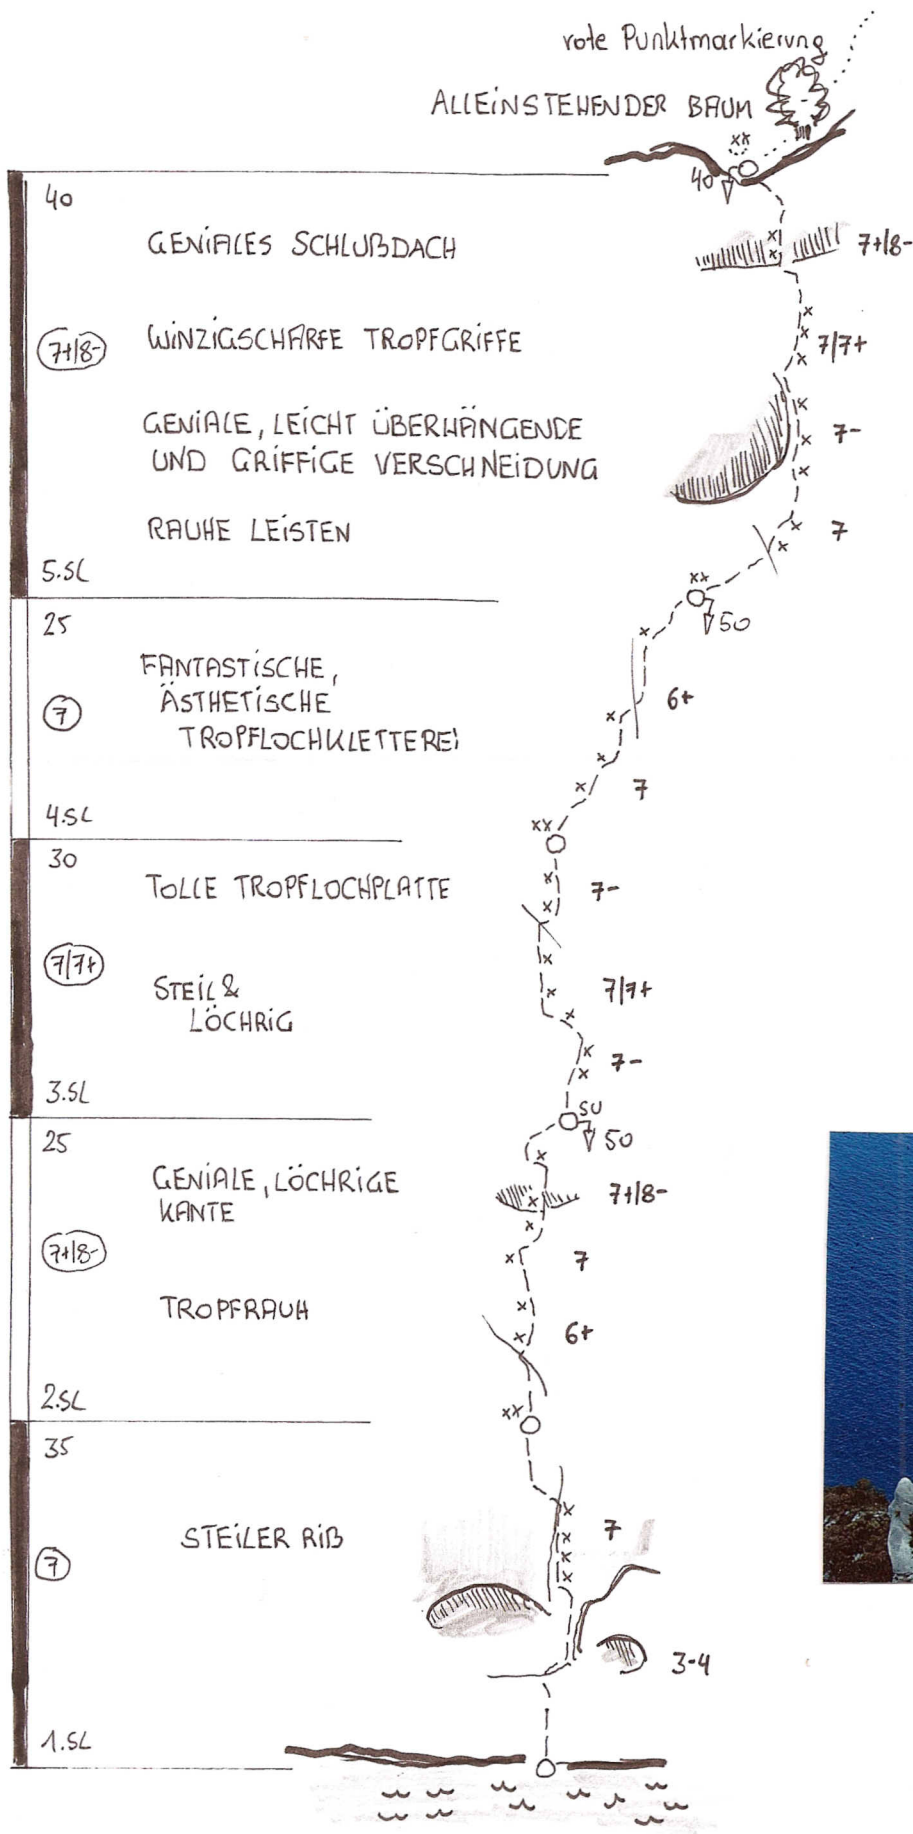 rote Punktmarkierung
ALLEINSTEHENDER BAUM
xx
40
40
GENIALES SCHLUßDACH
7+/8-
7+/8-
WINZIGSCHARFE TROPFGRIFFE
7/7+
GENIALE, LEICHT ÜBERHÄNGENDE
UND GRIFFIGE VERSCHNEIDUNG
7-
RAUHE LEISTEN
7
5.SL
xx
50
25
FANTASTISCHE,
ÄSTHETISCHE
TROPFLOCHKLETTEREI
7
6+
7
4.SL
xx
30
TOLLE TROPFLOCHPLATTE
7-
7/7+
STEIL &
LÖCHRIG
7/7+
7-
3.SL
SU
50
25
GENIALE, LÖCHRIGE
KANTE
7+/8-
7+/8-
7
TROPFRAUH
6+
2.SL
xx
35
STEILER RIß
7
7
3-4
1.SL